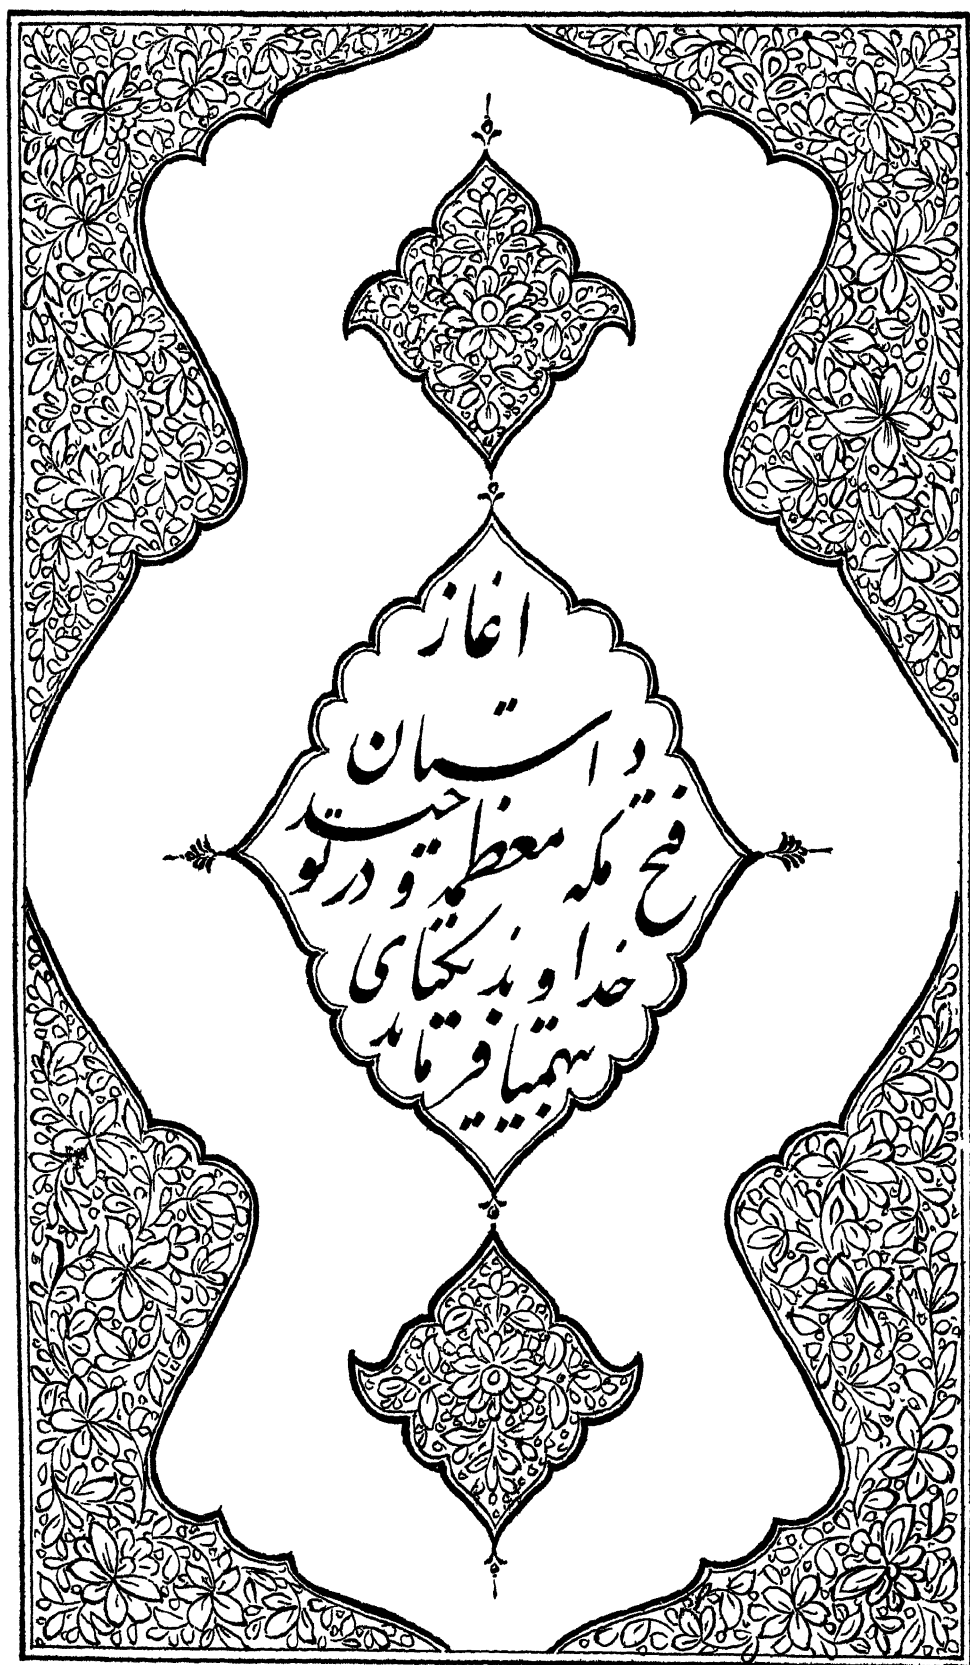 اغاز
داستان
فتح مکه معظمة و در توحید
خداوند یکتای
بیهمتا فرماید